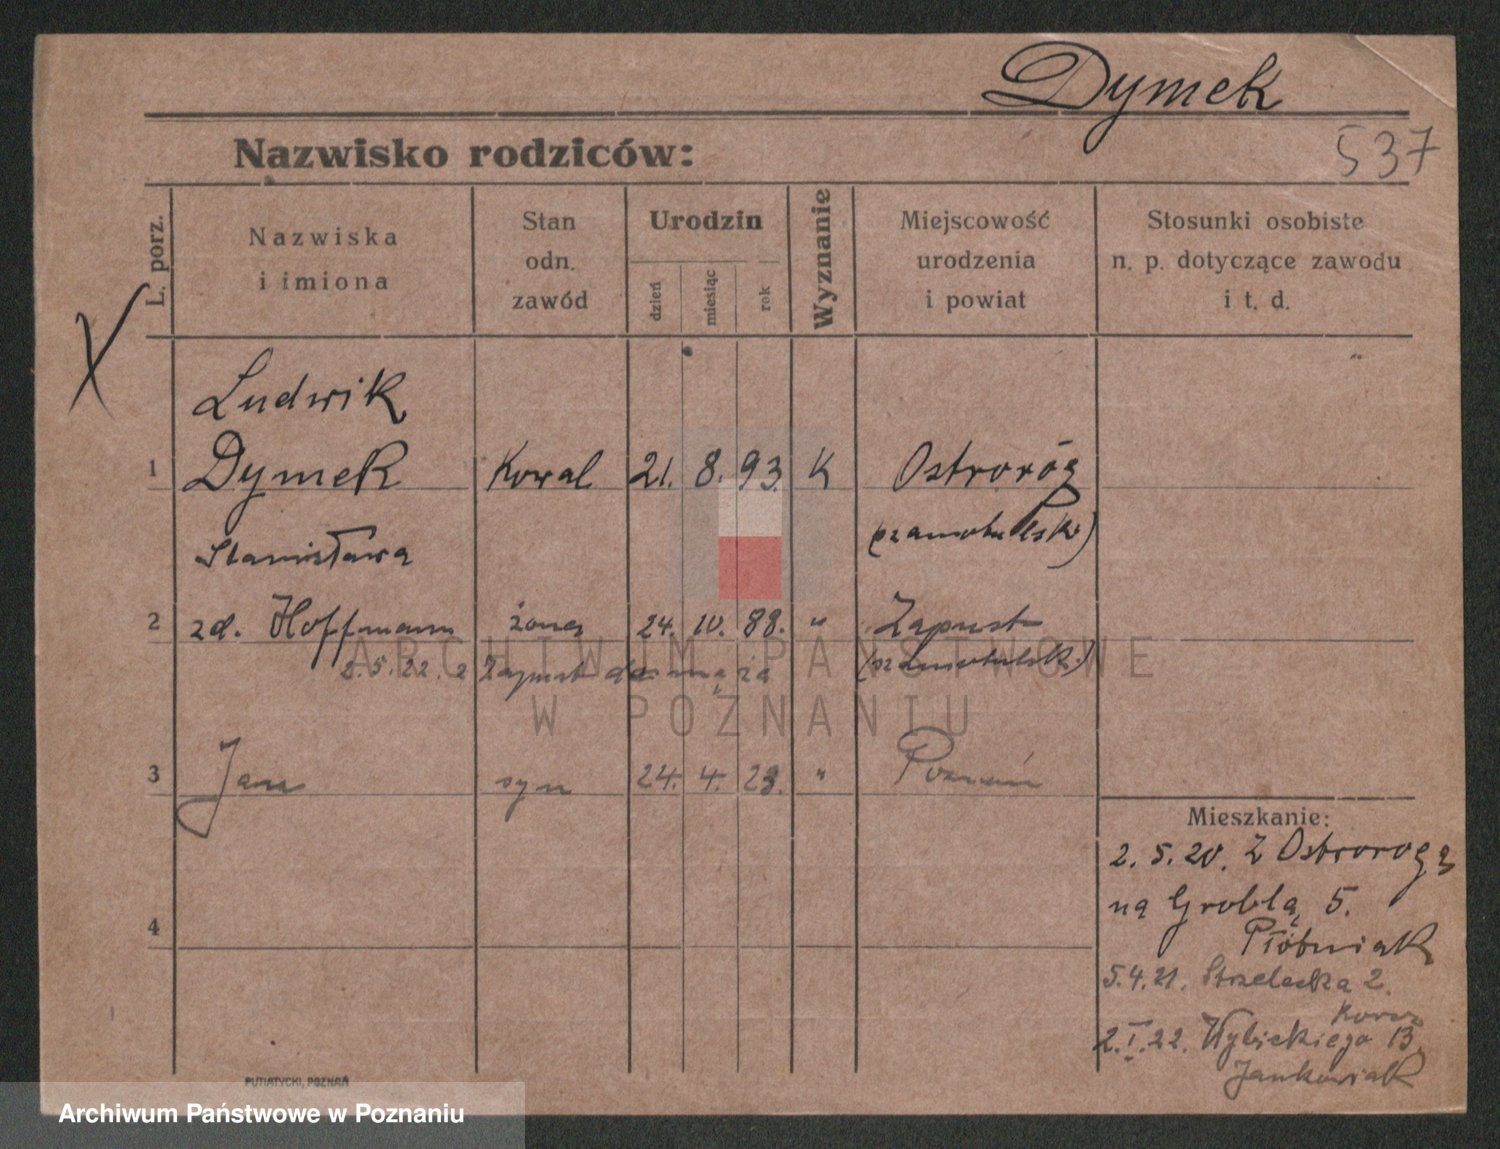 Dymek
537
Nazwisko rodziców:
L. porz.
Nazwiska
i imiona
Stan
odn.
zawód
Urodzin
dzień
miesiąc
rok
Wyznanie
Miejscowość
urodzenia
i powiat
Stosunki osobiste
n. p. dotyczące zawodu
i t. d.
Ludwik
1 Dymek Kowal 21. 8. 93. K Ostroróg
(szamotulski)
Stanisława
2 zd. Hoffmann żona 24. 10. 88. " Zapust
2.5.22. z Zapust do męża (szamotulsk.)
3 Jan syn 24. 4. 23. " Poznań
4
Mieszkanie:
2. 5. 20. Z Ostroroga
na Groblą 5.
5.4.21. Strzelecka 2.
2. I. 22. Wybickiego 13
Jankowiak
PUTIATYCKI, POZNAŃ
ARCHIWUM PAŃSTWOWE
W POZNANIU
Archiwum Państwowe w Poznaniu